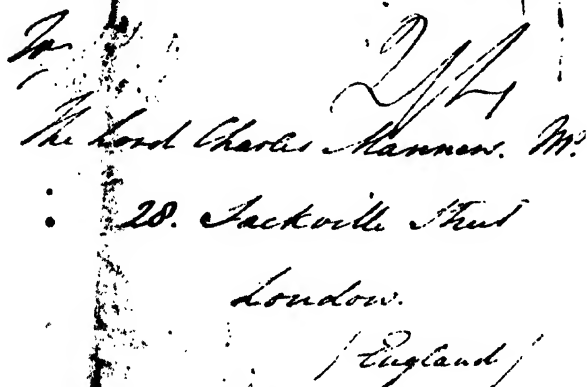 To
2/4
The Lord Charles Manners. M.
28. Sackville Street
London.
(England)